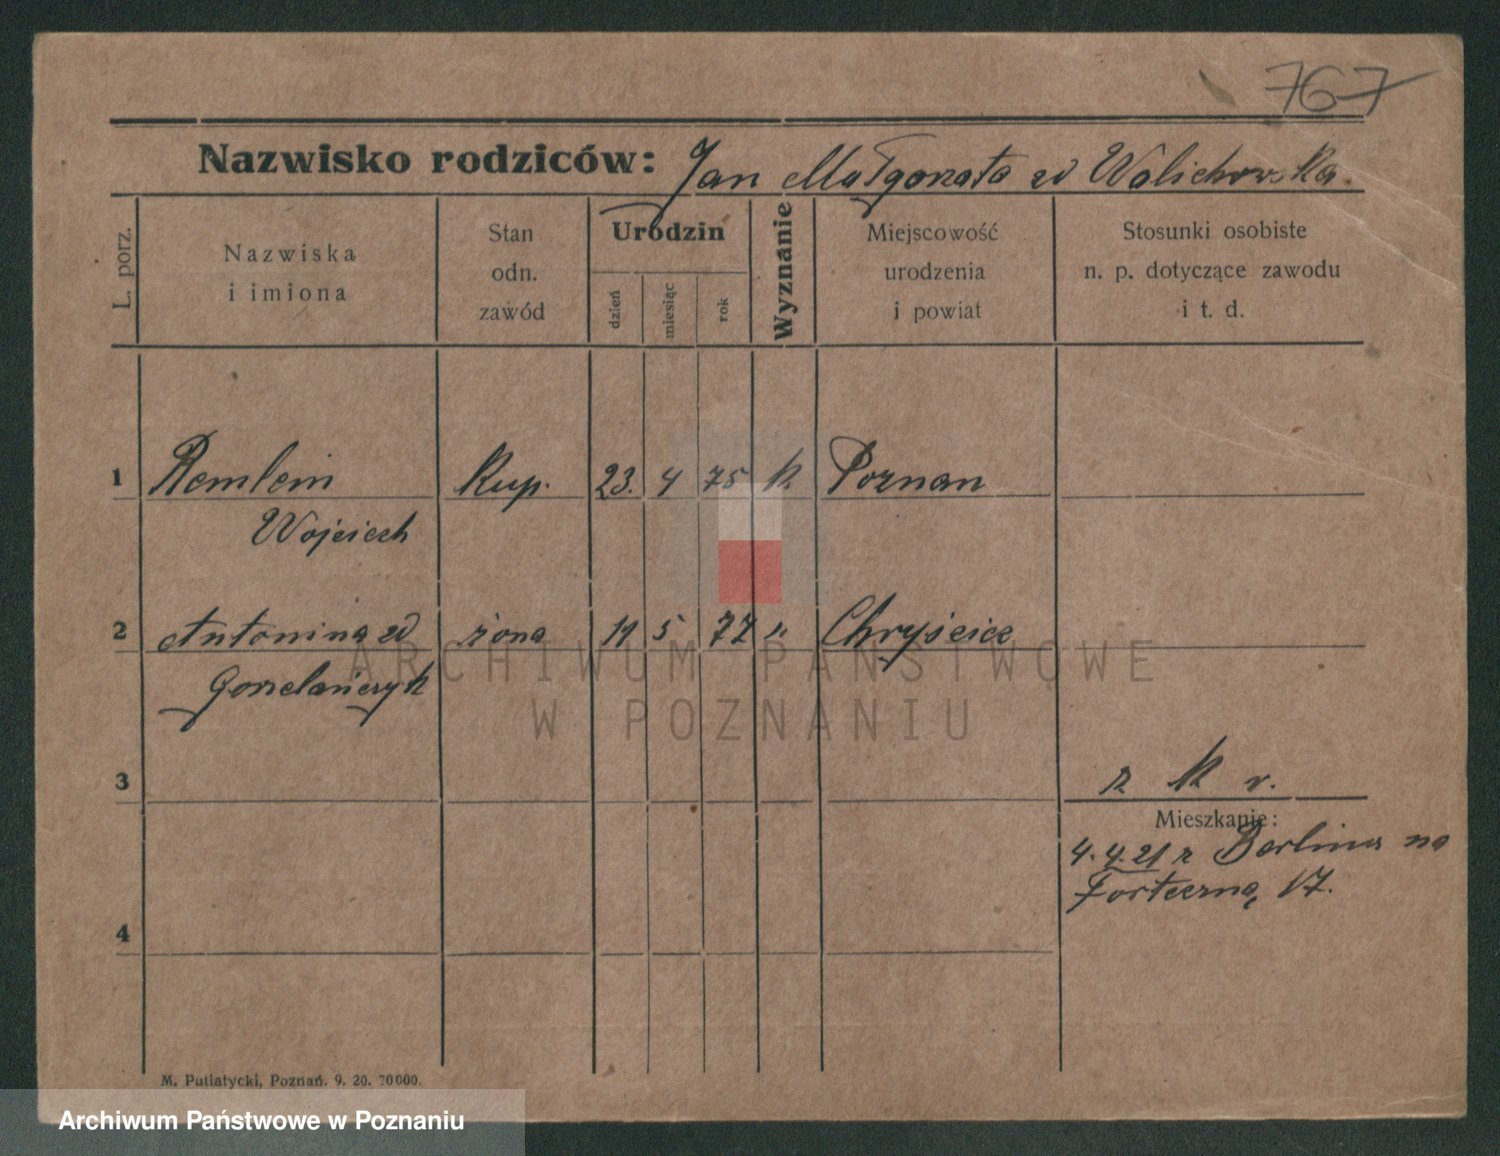 767
Nazwisko rodziców: Jan Małgorzata zd Walichowska.
L. porz.
Nazwiska
i imiona
Stan
odn.
zawód
Urodzin
dzień
miesiąc
rok
Wyznanie
Miejscowość
urodzenia
i powiat
Stosunki osobiste
n. p. dotyczące zawodu
i t. d.
1 Remlein Kup. 23. 4 75 k. Poznan
Wojciech
2 Antonina zd żona 11 5 77 ". Chryścice
Gorzelańczyk
ARCHIWUM PAŃSTWOWE
W POZNANIU
3
Mieszkanie:
4. 4. 21 z Berlina na
Forteczną 17.
4
M. Putiatycki, Poznań. 9. 20. 70000.
Archiwum Państwowe w Poznaniu